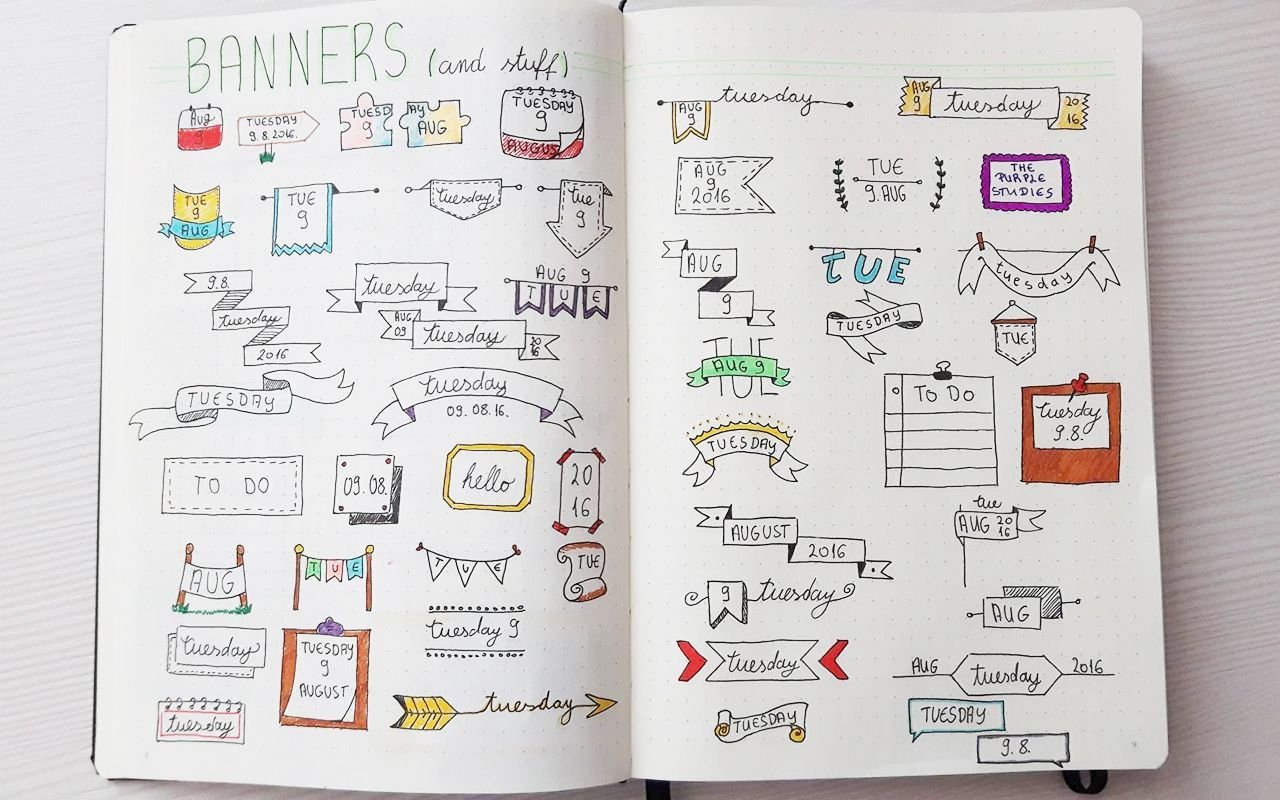 BANNERS (and stuff)
Aug
9
TUESDAY
9.8.2016.
TUESD
9
AY
AUG
TUESDAY
9
AUGUS
TUE
9
AUG
TUE
9
tuesday
tue
9
9.8.
tuesday
2016
tuesday
AUG 9
TUE
AUG
09
tuesday
20
16
TUESDAY
tuesday
09.08.16.
TO DO
09.08.
hello
20
16
AUG
TUE
TUE
TUE
tuesday
TUESDAY
9
AUGUST
tuesday 9
tuesday
tuesday
AUG
9
tuesday
AUG
9
tuesday
20
16
AUG
9
2016
TUE
9.AUG
THE
PURPLE
STUDIES
AUG
9
TUE
tuesday
TUESDAY
TUE
TUE
AUG 9
TO DO
tuesday
9.8.
TUESDAY
AUGUST
2016
tue
AUG 20
16
9
tuesday
AUG
tuesday
AUG
tuesday
2016
TUESDAY
TUESDAY
9.8.
9